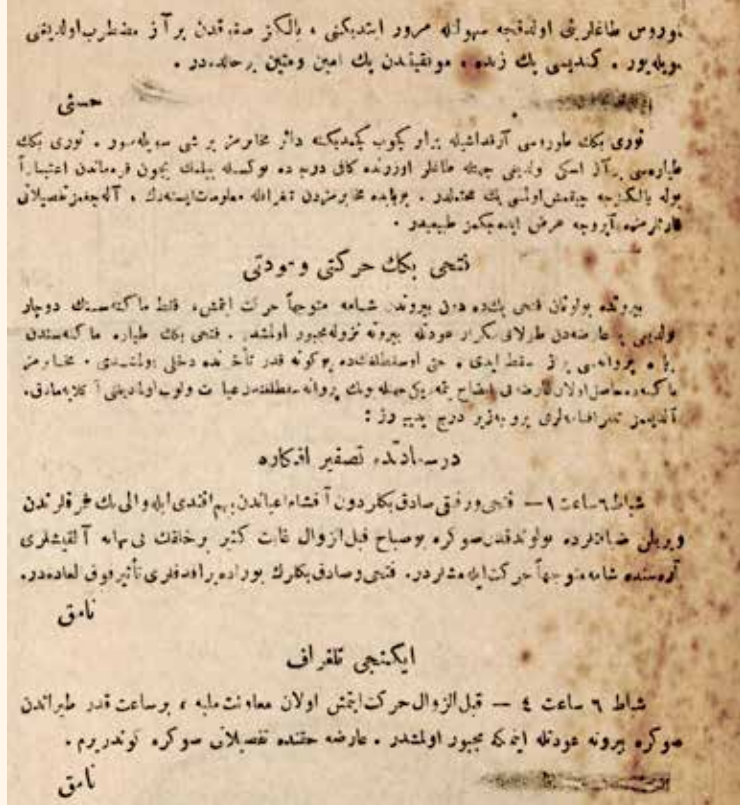 طوروس طاغلرینی اولدقجه سهولتله مرور ایتدیکنی ، یالکز صغوقدن بر آز مضطرب اولدیغنی
سویله‌یور . کندیسی پك زنده ، موفقیتندن پك امین ومتین بر حالده‌در .
حسنی
نوری بکك طوروسی آرقداشیله برابر کچوب کچمدیکنه دائر مخابرمز بر شی سویله‌میور . نوری بکك
طیاره‌سی بر آز اسکی اولدیغی جهتله طاغلر اوزرنده کافی درجه‌ده یوکسله بیلمك ایچون قره‌ماندن اعتباراً
یوله یالکزجه چیقمش اولمسی پك محتملدر . بوبابده مخابرمزدن تلغرافله معلومات ایسته‌دك . آله‌جغمز تفصیلاتی
قارئلرمزه آیروجه عرض ایده‌جکمز طبیعیدر .
فتحی بکك حرکتی وعودتی
بیروتده بولونان فتحی بك‌ده دون بیروتدن شامه متوجهاً حرکت ایتمش، فقط ماکنه‌سنك دوچار
اولدیغی بر عارضه‌دن طولایی تکرار عودتله بیروته نزوله مجبور اولمشدر . فتحی بکك طیاره ماکنه‌سندن
پروانه‌سی بر آز سقط ایدی . حتی بو سقطلغك‌ده بوکونه قدر تأخرنده دخلی اولمشدی . مخابرمز
ماکنه‌ده حاصل اولان عارضه‌یی ایضاح ایتمه‌دیکی جهتله بونك پروانه سقطلغندن عبارت اولوب اولمادیغنی آ کلایه‌مادق.
آلدیغمز تلغرافنامه‌لری بروجه‌زیر درج ایدییورز :
درسعادتده تصفیر افکاره
شباط ٦ ساعت ١ — فتحی ورفیقی صادق بکلر دون آقشام اعیاندن بیهم افندی ایله والی بك طرفلرندن
ویریلن ضیافتلرده بولوندقدن صوکره بو صباح قبل‌الزوال غایت کثیر بر خلقك بی‌نهایه آلقیشلری
آره‌سنده شامه متوجهاً حرکت ایله‌مشلردر. فتحی وصادق بکلرك بوراده براقدقلری تأثیر فوق‌العاده‌در.
نامق
ایکنجی تلغراف
شباط ٦ ساعت ٤ — قبل‌الزوال حرکت ایتمش اولان معاونت ملیه ، بر ساعت قدر طیراندن
صوکره بیروته عودتله اینمکه مجبور اولمشدر . عارضه حقنده تفصیلاتی صوکره کوندریرم .
نامق